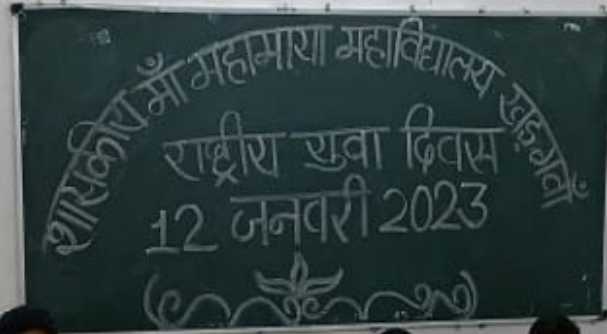 शासकीय माँ महामाया महाविद्यालय खड़गवाँ
राष्ट्रीय युवा दिवस
12 जनवरी 2023